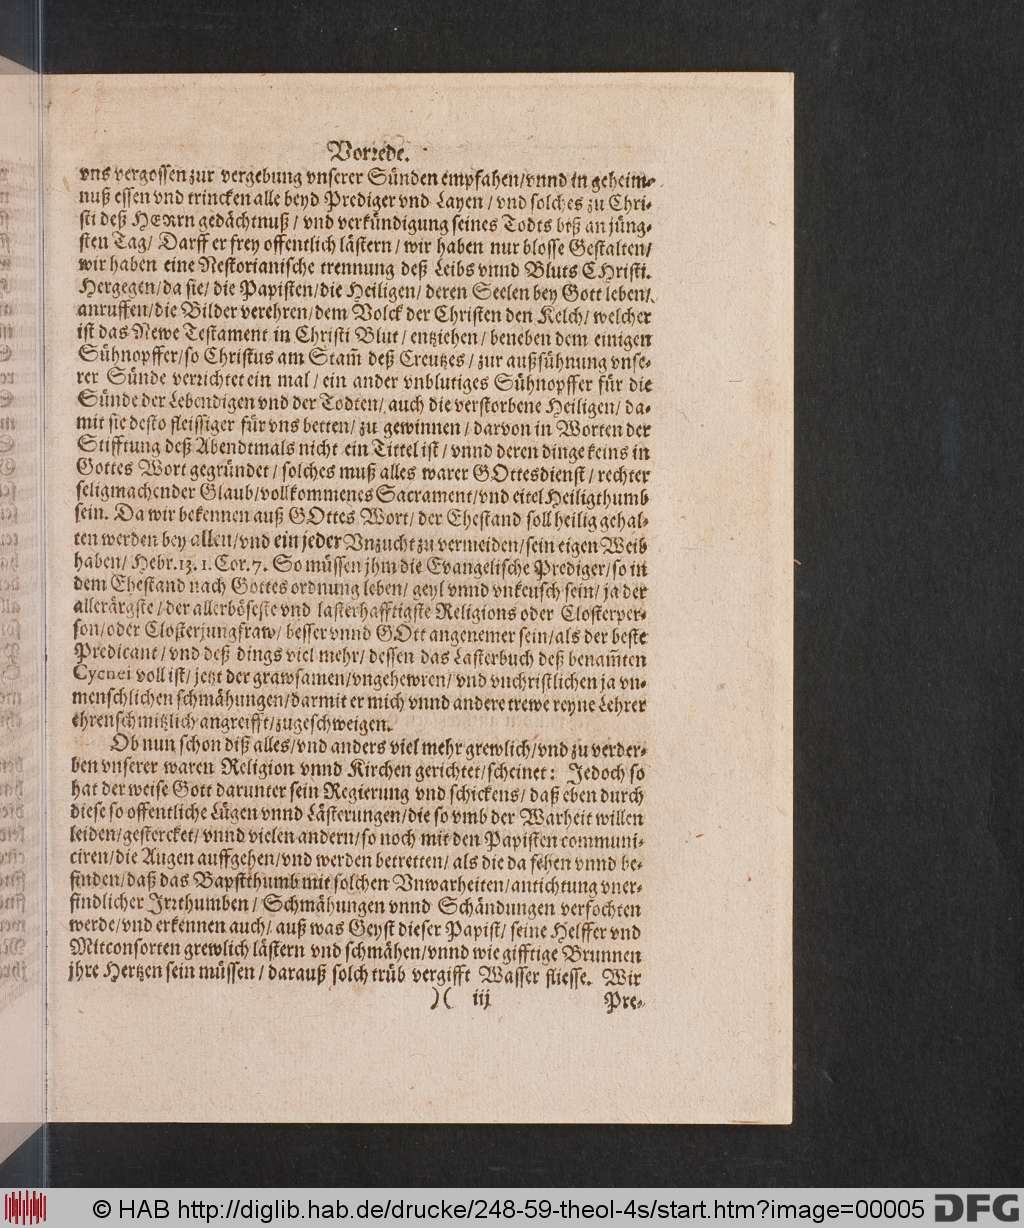 Vorrede.
vns vergossen zur vergebung vnserer Sünden empfahen/vnnd in geheim-
nuß essen vnd trincken alle beyd Prediger vnd Layen / vnd solches zu Chri-
sti deß HErrn gedächtnuß / vnd verkündigung seines Todts biß an jüng-
sten Tag/ Darff er frey offentlich lästern / wir haben nur blosse Gestalten/
wir haben eine Nestorianische trennung deß Leibs vnnd Bluts CHristi.
Hergegen/da sie/ die Papisten/die Heiligen/ deren Seelen bey Gott leben/
anruffen/die Bilder verehren/dem Volck der Christen den Kelch/ welcher
ist das Newe Testament in Christi Blut / entziehen/ beneben dem einigen
Sühnopffer/so Christus am Stam̃ deß Creutzes / zur außsühnung vnse-
rer Sünde verrichtet ein mal / ein ander vnblutiges Sühnopffer für die
Sünde der Lebendigen vnd der Todten/ auch die verstorbene Heiligen/ da-
mit sie desto fleissiger für vns betten/ zu gewinnen / darvon in Worten der
Stifftung deß Abendtmals nicht ein Tittel ist / vnnd deren dinge keins in
Gottes Wort gegründet / solches muß alles warer GOttesdienst / rechter
seligmachender Glaub/vollkommenes Sacrament/vnd eitel Heiligthumb
sein. Da wir bekennen auß GOttes Wort/ der Ehestand soll heilig gehal-
ten werden bey allen/vnd ein jeder Vnzucht zu vermeiden/sein eigen Weib
haben/ Hebr. 13. 1. Cor. 7. So müssen jhm die Evangelische Prediger/so in
dem Ehestand nach Gottes ordnung leben/ geyl vnnd vnkeusch sein/ ja der
allerärgste / der allerböseste vnd lasterhafftigste Religions oder Closterper-
son/oder Closterjungfraw/ besser vnnd GOtt angenemer sein/als der beste
Predicant / vnd deß dings viel mehr/ dessen das Lasterbuch deß benam̃ten
Cycnei voll ist/ jetzt der grawsamen/vngehewren/ vnd vnchristlichen ja vn-
menschlichen schmähungen/darmit er mich vnnd andere trewe reyne Lehrer
ehrenschmitzlich angreifft/zugeschweigen.
Ob nun schon diß alles/vnd anders viel mehr grewlich/vnd zu verder-
ben vnserer waren Religion vnnd Kirchen gerichtet/scheinet: Jedoch so
hat der weise Gott darunter sein Regierung vnd schickens/ daß eben durch
diese so offentliche Lügen vnnd Lästerungen/die so vmb der Warheit willen
leiden/gestercket/ vnnd vielen andern/so noch mit den Papisten communi-
ciren/die Augen auffgehen/vnd werden betretten/ als die da sehen vnnd be-
finden/daß das Bapstthumb mit solchen Vnwarheiten/antichtung vner-
findlicher Irrthumben / Schmähungen vnnd Schändungen verfochten
werde/vnd erkennen auch/ auß was Geyst dieser Papist/ seine Helffer vnd
Mitconsorten grewlich lästern vnd schmähen/vnnd wie gifftige Brunnen
jhre Hertzen sein müssen / darauß solch trüb vergifft Wasser fliesse. Wir
)( iij Pre-
© HAB http://diglib.hab.de/drucke/248-59-theol-4s/start.htm?image=00005 DFG